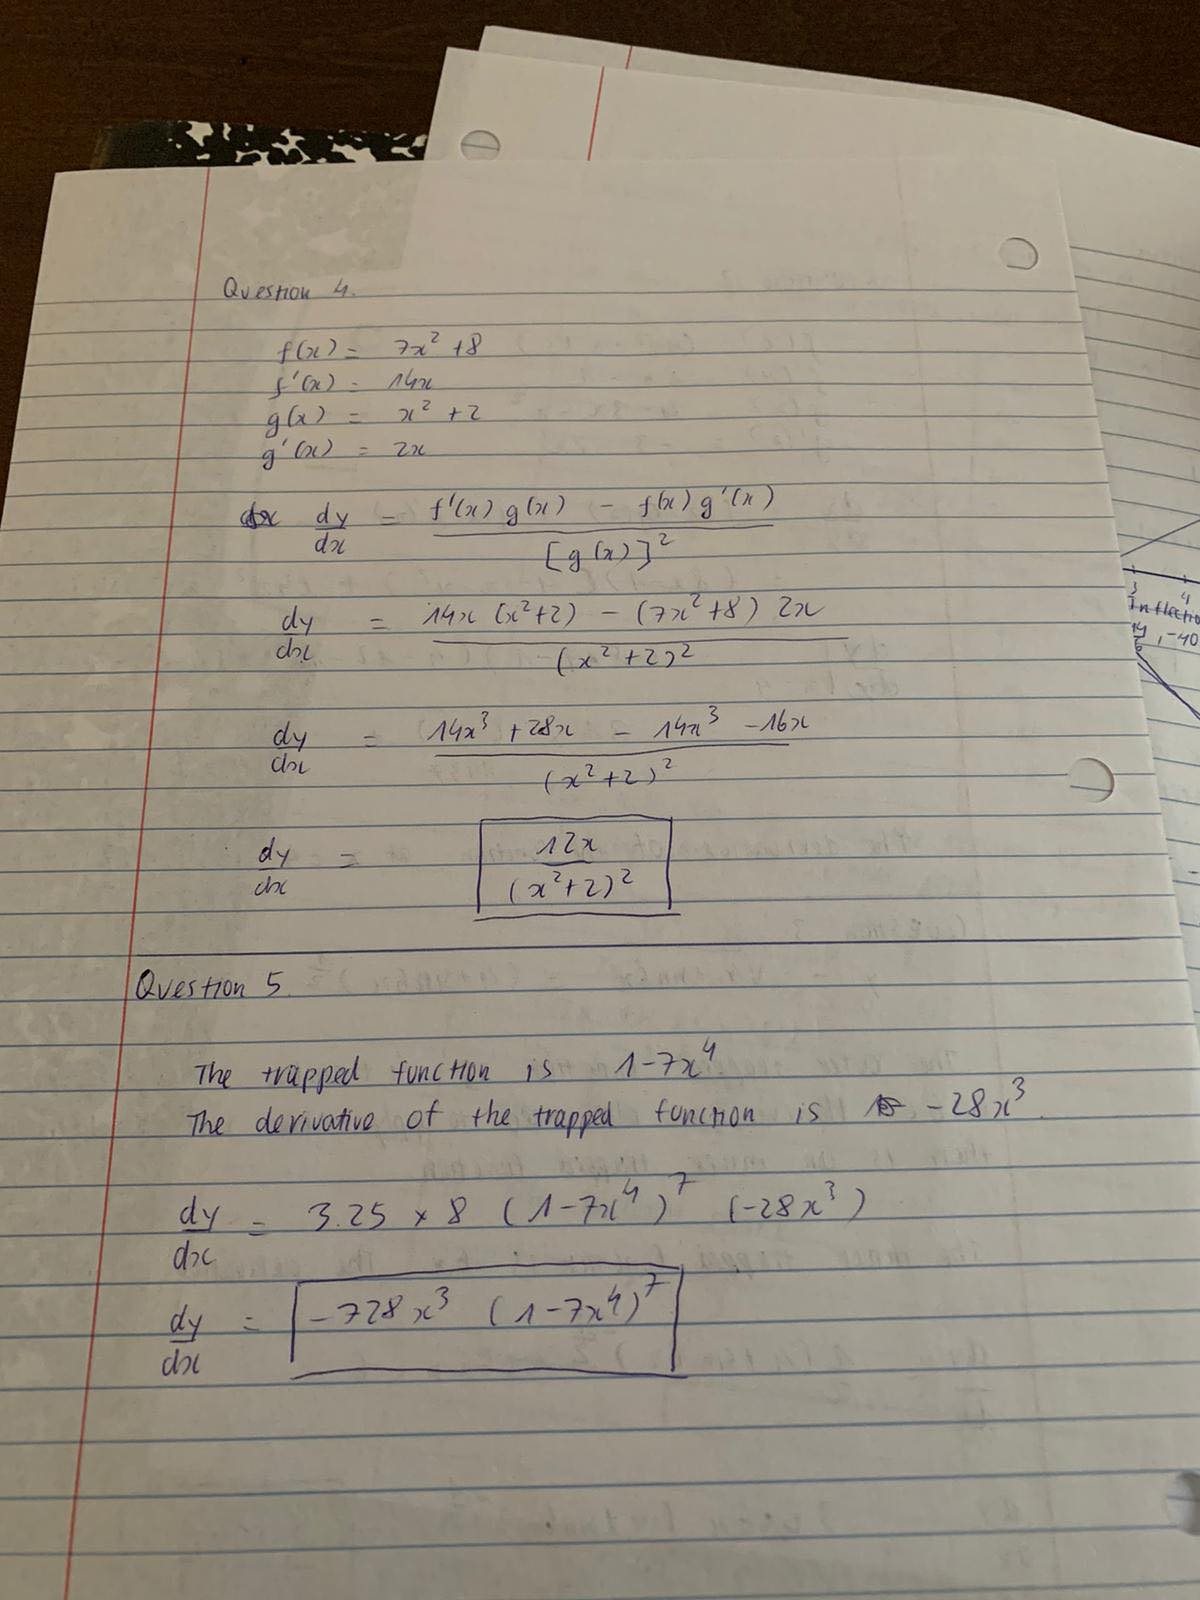 Question 4.
f(x) = 7x² + 8
f'(x) = 14x
g(x) = x² + 2
g'(x) = 2x
dy/dx = f'(x) g(x) - f(x) g'(x) / [g(x)]²
dy/dx = 14x (x²+2) - (7x²+8) 2x / (x²+2)²
dy/dx = 14x³ + 28x - 14x³ - 16x / (x²+2)²
dy/dx = 12x / (x²+2)²
Question 5.
The trapped function is 1-7x⁴
The derivative of the trapped function is -28x³.
dy/dx = 3.25 × 8 (1-7x⁴)⁷ (-28x³)
dy/dx = -728x³ (1-7x⁴)⁷
3 4
Inflectio
, -40